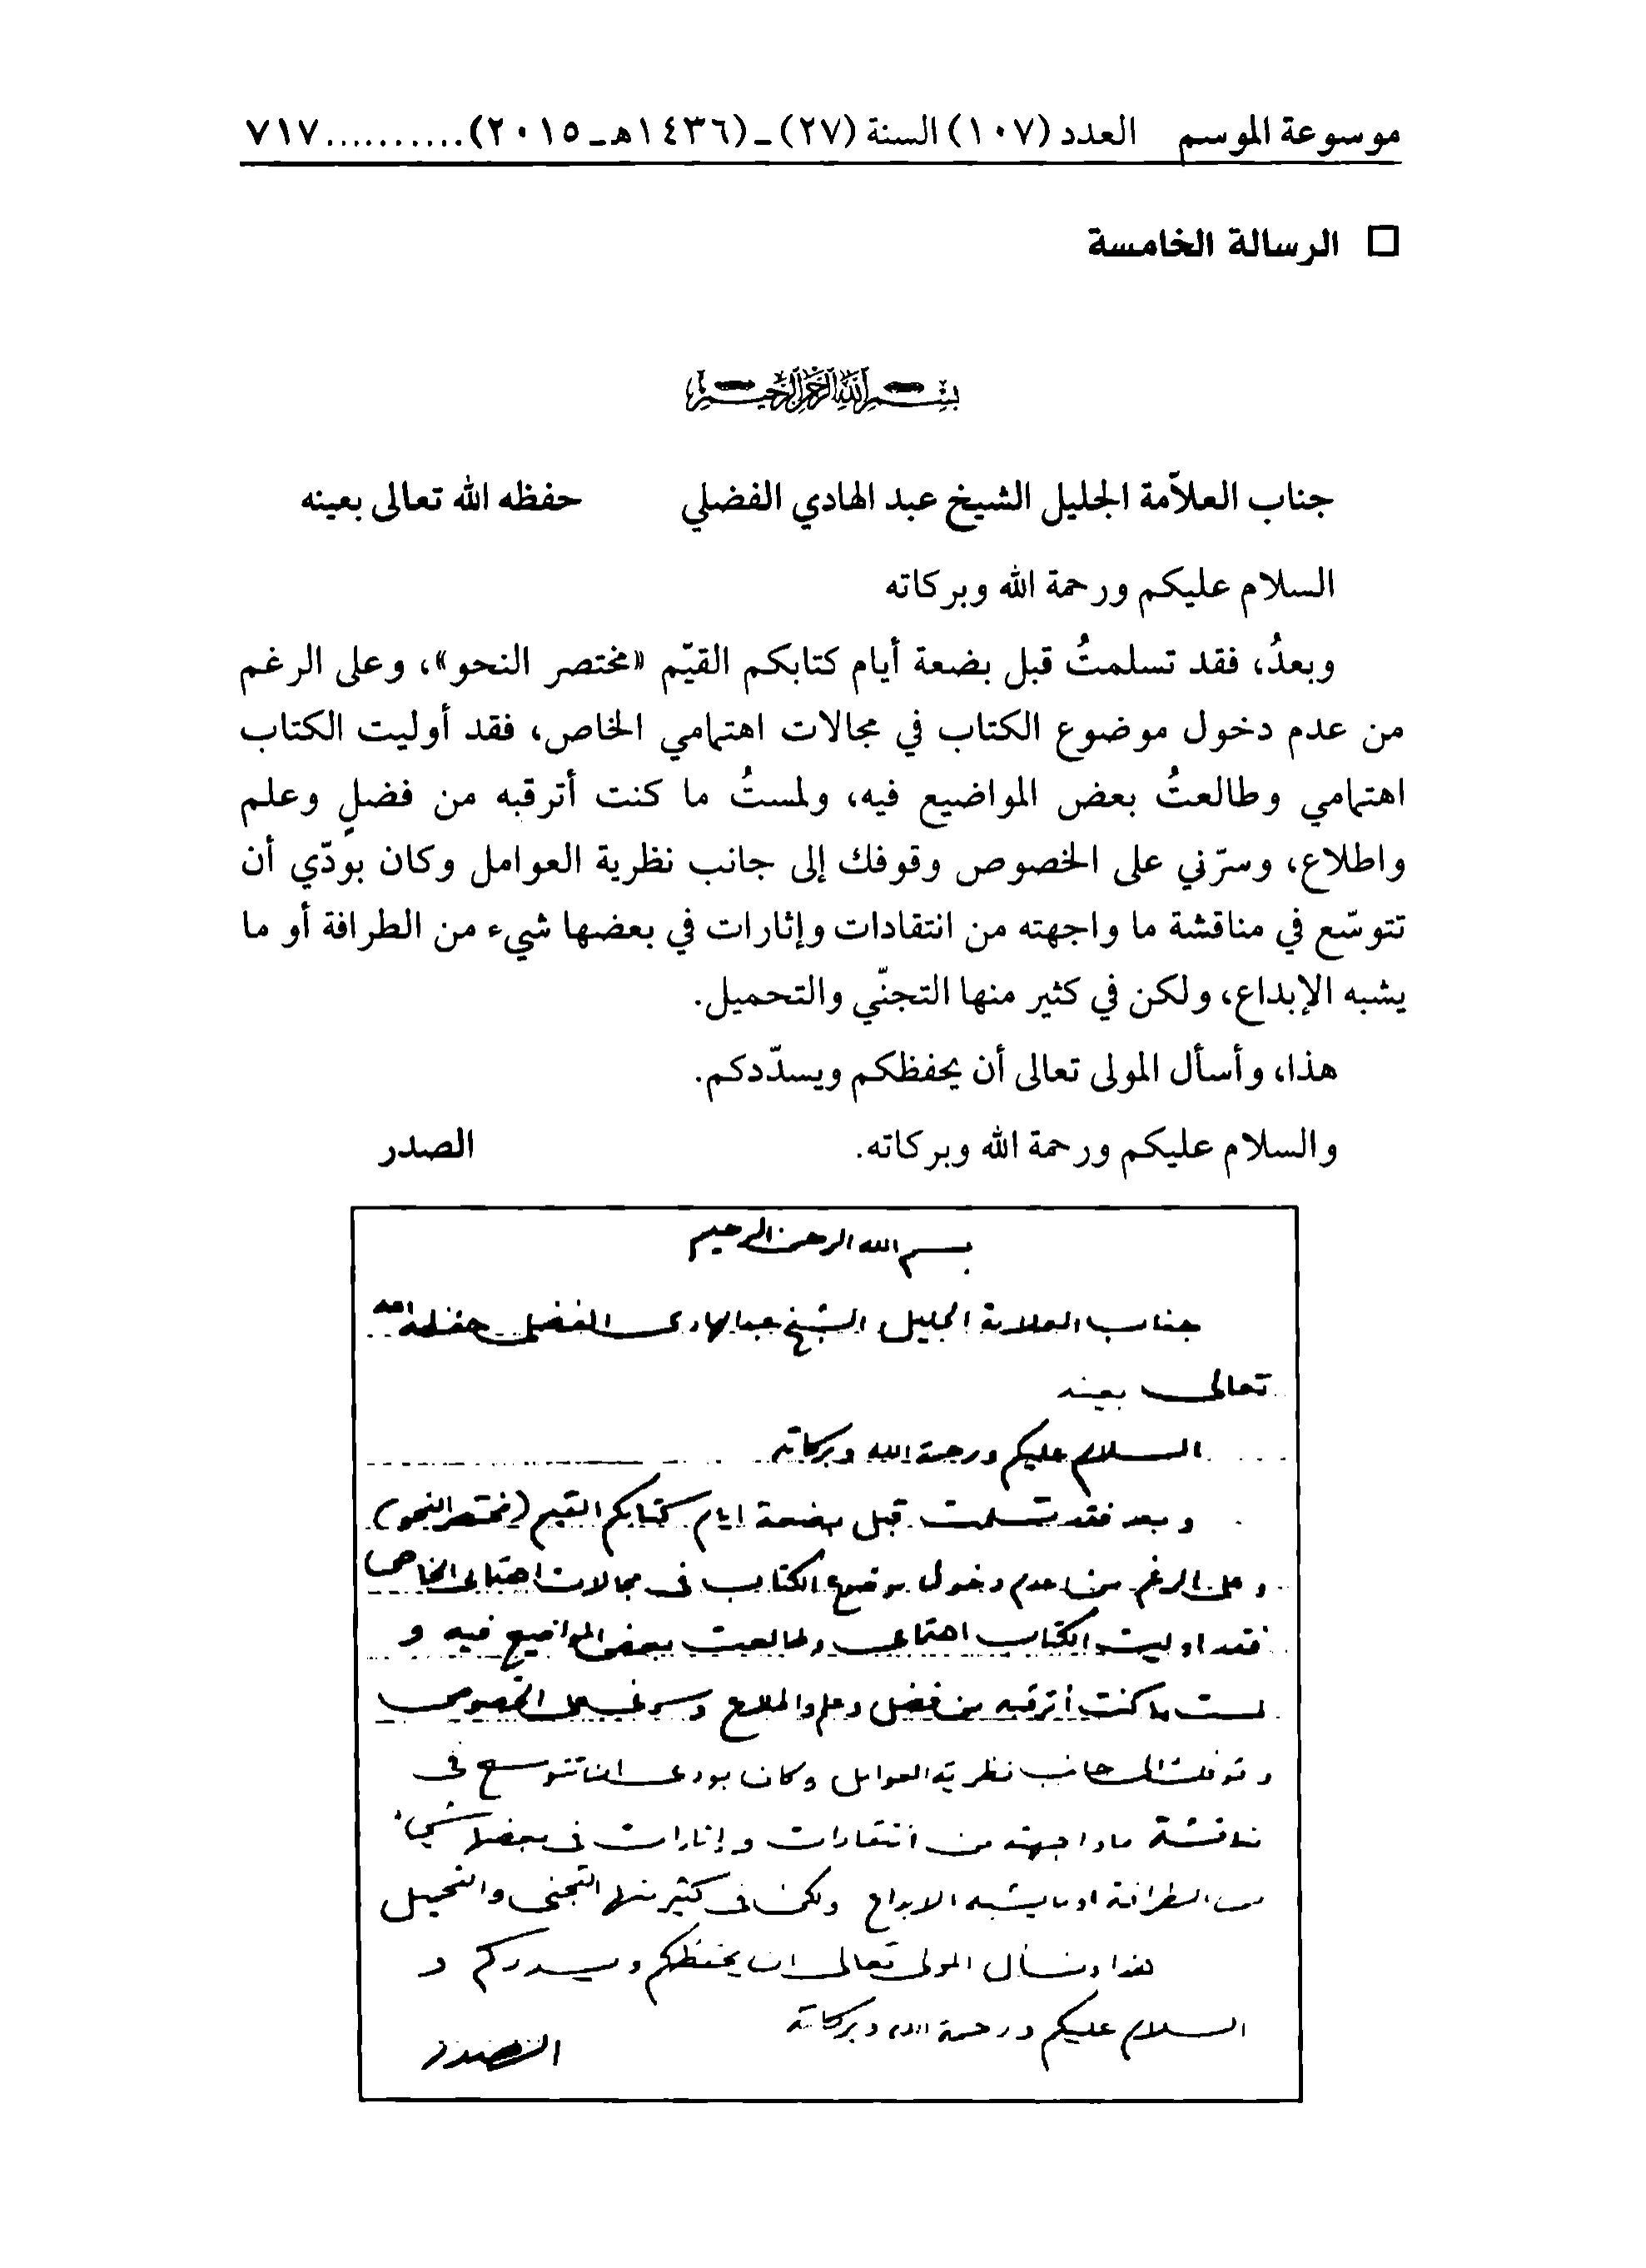 موسوعة الموسم العدد (١٠٧) السنة (٢٧) ـ (١٤٣٦هـ ـ ٢٠١٥)..........٧١٧
□ الرسالة الخامسة
بسم الله الرحمن الرحيم
جناب العلاّمة الجليل الشيخ عبد الهادي الفضلي حفظه الله تعالى بعينه
السلام عليكم ورحمة الله وبركاته
وبعدُ، فقد تسلمتُ قبل بضعة أيام كتابكم القيّم «مختصر النحو»، وعلى الرغم
من عدم دخول موضوع الكتاب في مجالات اهتمامي الخاص، فقد أوليت الكتاب
اهتمامي وطالعتُ بعض المواضيع فيه، ولمستُ ما كنت أترقبه من فضلٍ وعلم
واطلاع، وسرّني على الخصوص وقوفك إلى جانب نظرية العوامل وكان بودّي أن
تتوسّع في مناقشة ما واجهته من انتقادات وإثارات في بعضها شيء من الطرافة أو ما
يشبه الإبداع، ولكن في كثير منها التجنّي والتحميل.
هذا، وأسأل المولى تعالى أن يحفظكم ويسدّدكم.
والسلام عليكم ورحمة الله وبركاته. الصدر
بسم الله الرحمن الرحيم
جناب العلامة الجليل الشيخ عبد الهادي الفضلي حفظه الله
تعالى بعينه
السلام عليكم ورحمة الله وبركاته
وبعد فقد تسلمت قبل بضعة ايام كتابكم القيم (مختصر النحو)
وعلى الرغم من عدم دخول موضوع الكتاب في مجالات اهتمامي الخاص
فقد اوليت الكتاب اهتمامي وطالعت بعض المواضيع فيه و
لمست ما كنت أترقبه من فضل وعلم واطلاع وسرني على الخصوص
وقوفك الى جانب نظرية العوامل وكان بودي ان تتوسع في
مناقشة ما واجهته من انتقادات وإثارات في بعضها شيء
من الطرافة او ما يشبه الابداع ولكن في كثير منها التجني والتحميل
هذا ونسأل المولى تعالى ان يحفظكم ويسددكم و
السلام عليكم ورحمة الله وبركاته
الصدر